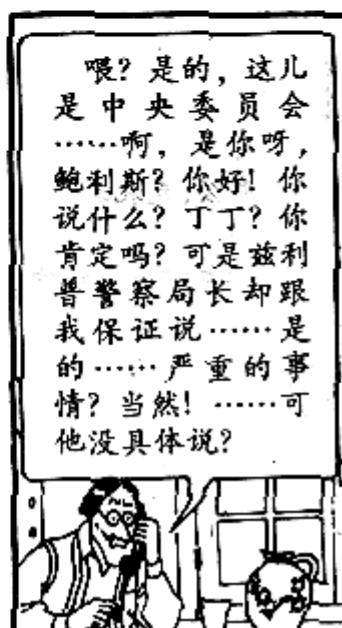 喂？是的，这儿
是中央委员会
……啊，是你呀，
鲍利斯？你好！你
说什么？丁丁？你
肯定吗？可是兹利
普警察局长却跟
我保证说……是
的……严重的事
情？当然！……可
他没具体说？